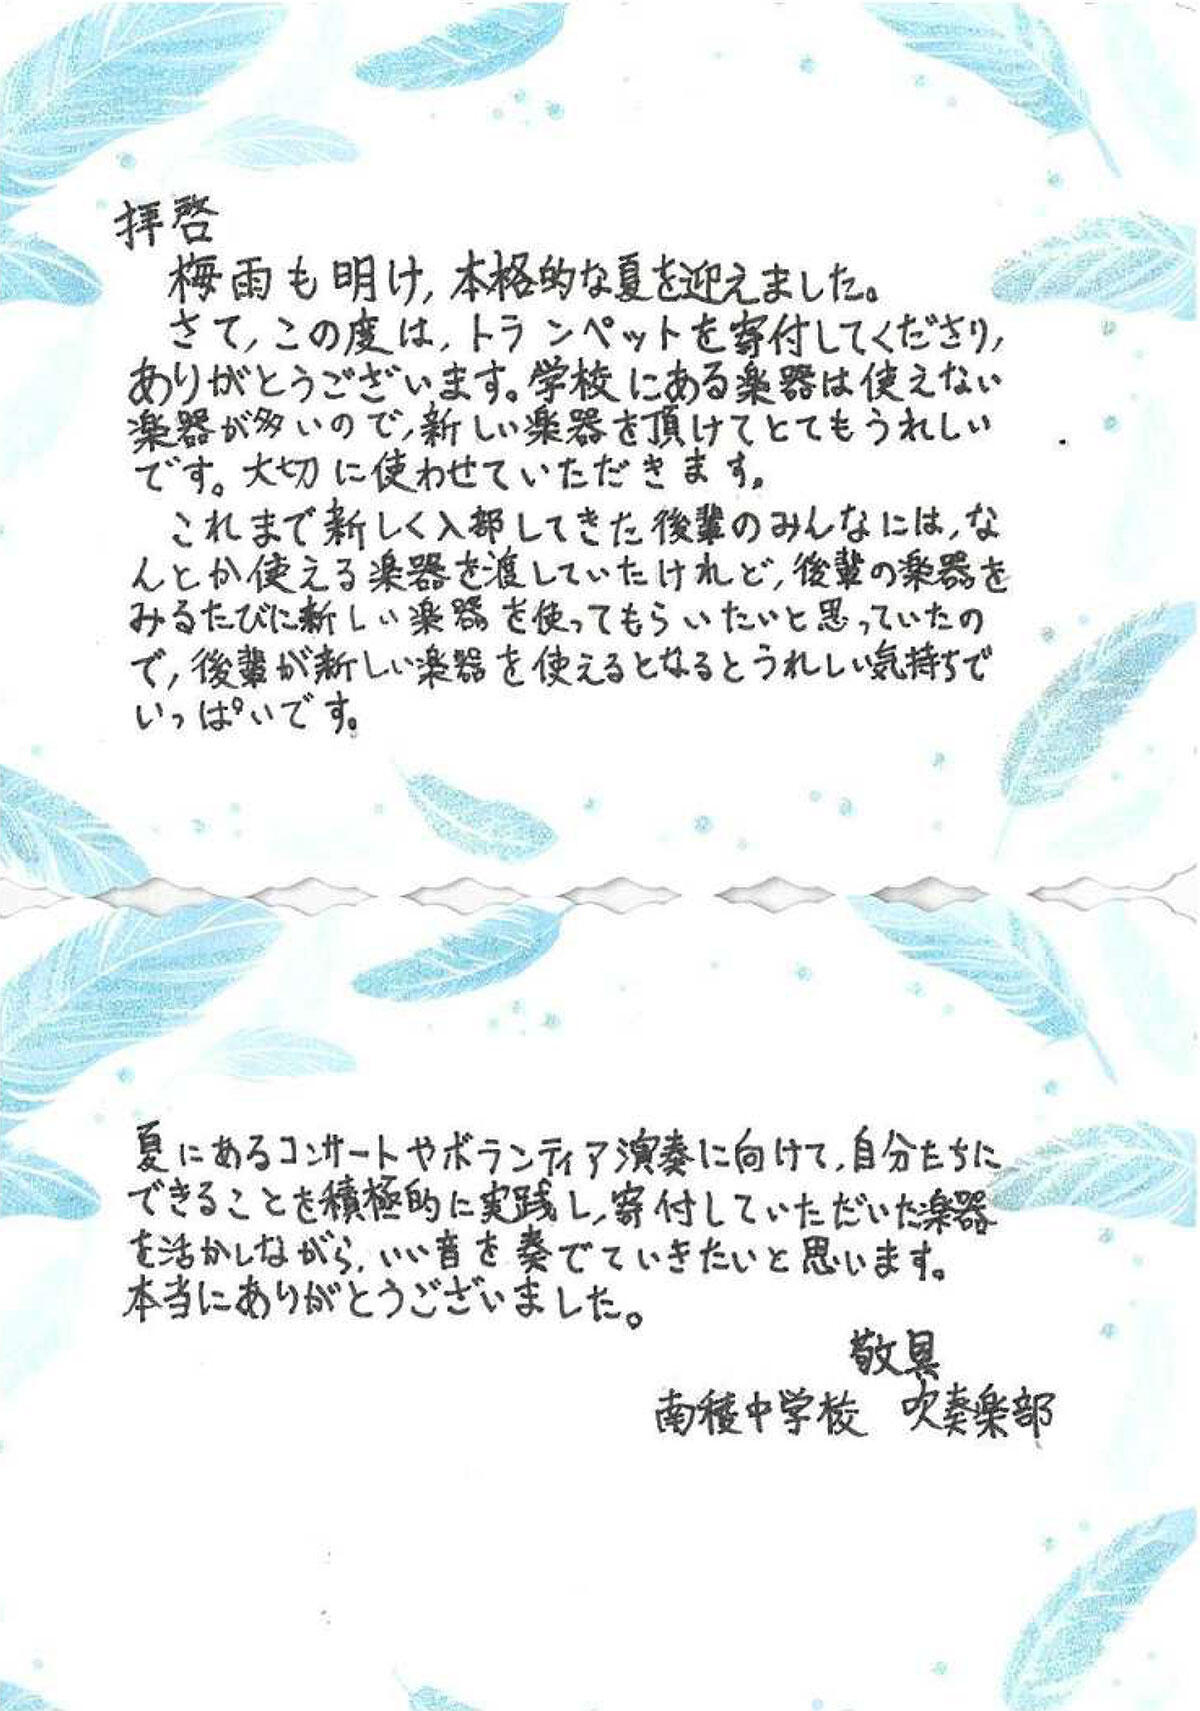 拝啓
梅雨も明け,本格的な夏を迎えました。
さて,この度は,トランペットを寄付してくださり,
ありがとうございます。学校にある楽器は使えない
楽器が多いので,新しい楽器を頂けてとてもうれしい
です。大切に使わせていただきます。
これまで新しく入部してきた後輩のみんなには,な
んとか使える楽器を渡していたけれど,後輩の楽器を
みるたびに新しい楽器を使ってもらいたいと思っていたの
で,後輩が新しい楽器を使えるとなるとうれしい気持ちで
いっぱいです。
夏にあるコンサートやボランティア演奏に向けて,自分たちに
できることを積極的に実践し,寄付していただいた楽器
を活かしながら,いい音を奏でていきたいと思います。
本当にありがとうございました。
敬具
南稜中学校 吹奏楽部